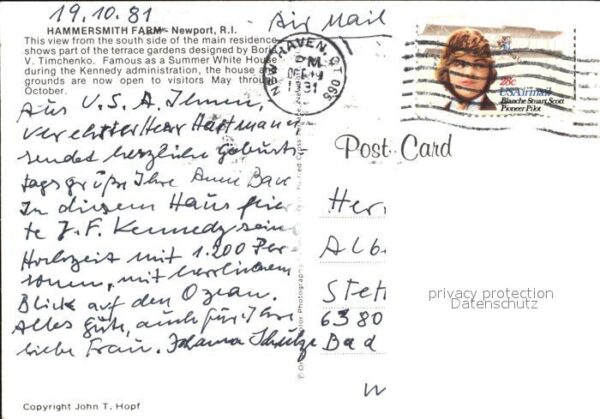 19.10.81
Air Mail
HAMMERSMITH FARM - Newport, R.I.
This view from the south side of the main residence
shows part of the terrace gardens designed by Boris
V. Timchenko. Famous as a Summer White House
during the Kennedy administration, the house and
grounds are now open to visitors May through
October.
NEW HAVEN, CT 065
PM
19
1981
28c
USAirmail
Blanche Stuart Scott
Pioneer Pilot
Aus U.S.A. Ihnen,
verehrter Herr Hartmann
sendet herzliche Geburts
tagsgrüße Ihre Anne Bax
In diesem Haus feier
te J.F. Kennedy seine
Hochzeit mit 1.200 Per
sonen, mit herrlichem
Blick auf den Ozean.
Alles gute, auch für Ihre
liebe Frau. Johanna Schulze
Post Card
Her
Alb
Stet
6380
Bad
W
privacy protection
Datenschutz
Copyright John T. Hopf